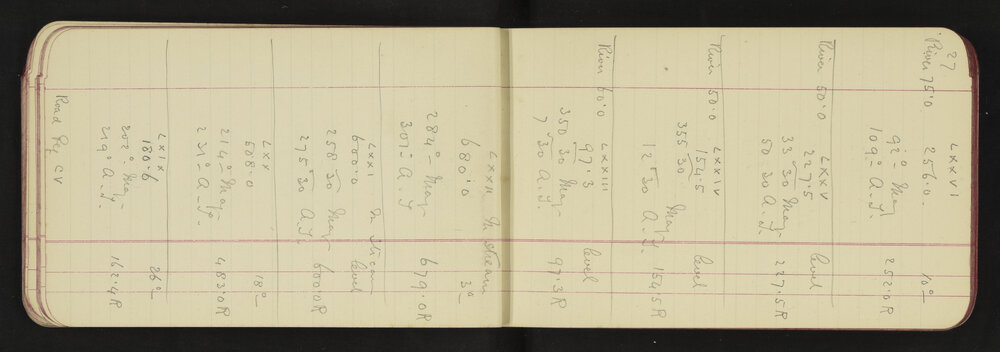 27 LXXVI
River 75.0 256.0 10°
92° Mag 252.0R
109° A.Y.
River 50.0 LXXV level
227.5
33 30 Mag 227.5R
50 30 A.Y.
River 50.0 LXXIV
154.5 level
355 30 Mag
12 30 A.Y. 154.5R
River 60.0 LXXIII
97.3 level
350 30 Mag
7 30 A.Y. 97.3R
LXXII In stream
680.0 3°
284° Mag 679.0R
301° A.Y.
LXXI In stream
600.0 level
258 30 Mag
275 30 A.Y. 600.0R
LXX
508.0 18°
214° Mag 483.0R
231° A.Y.
LXIX
180.6 26°
202° Mag
219° A.Y. 162.4R
Road Peg CV